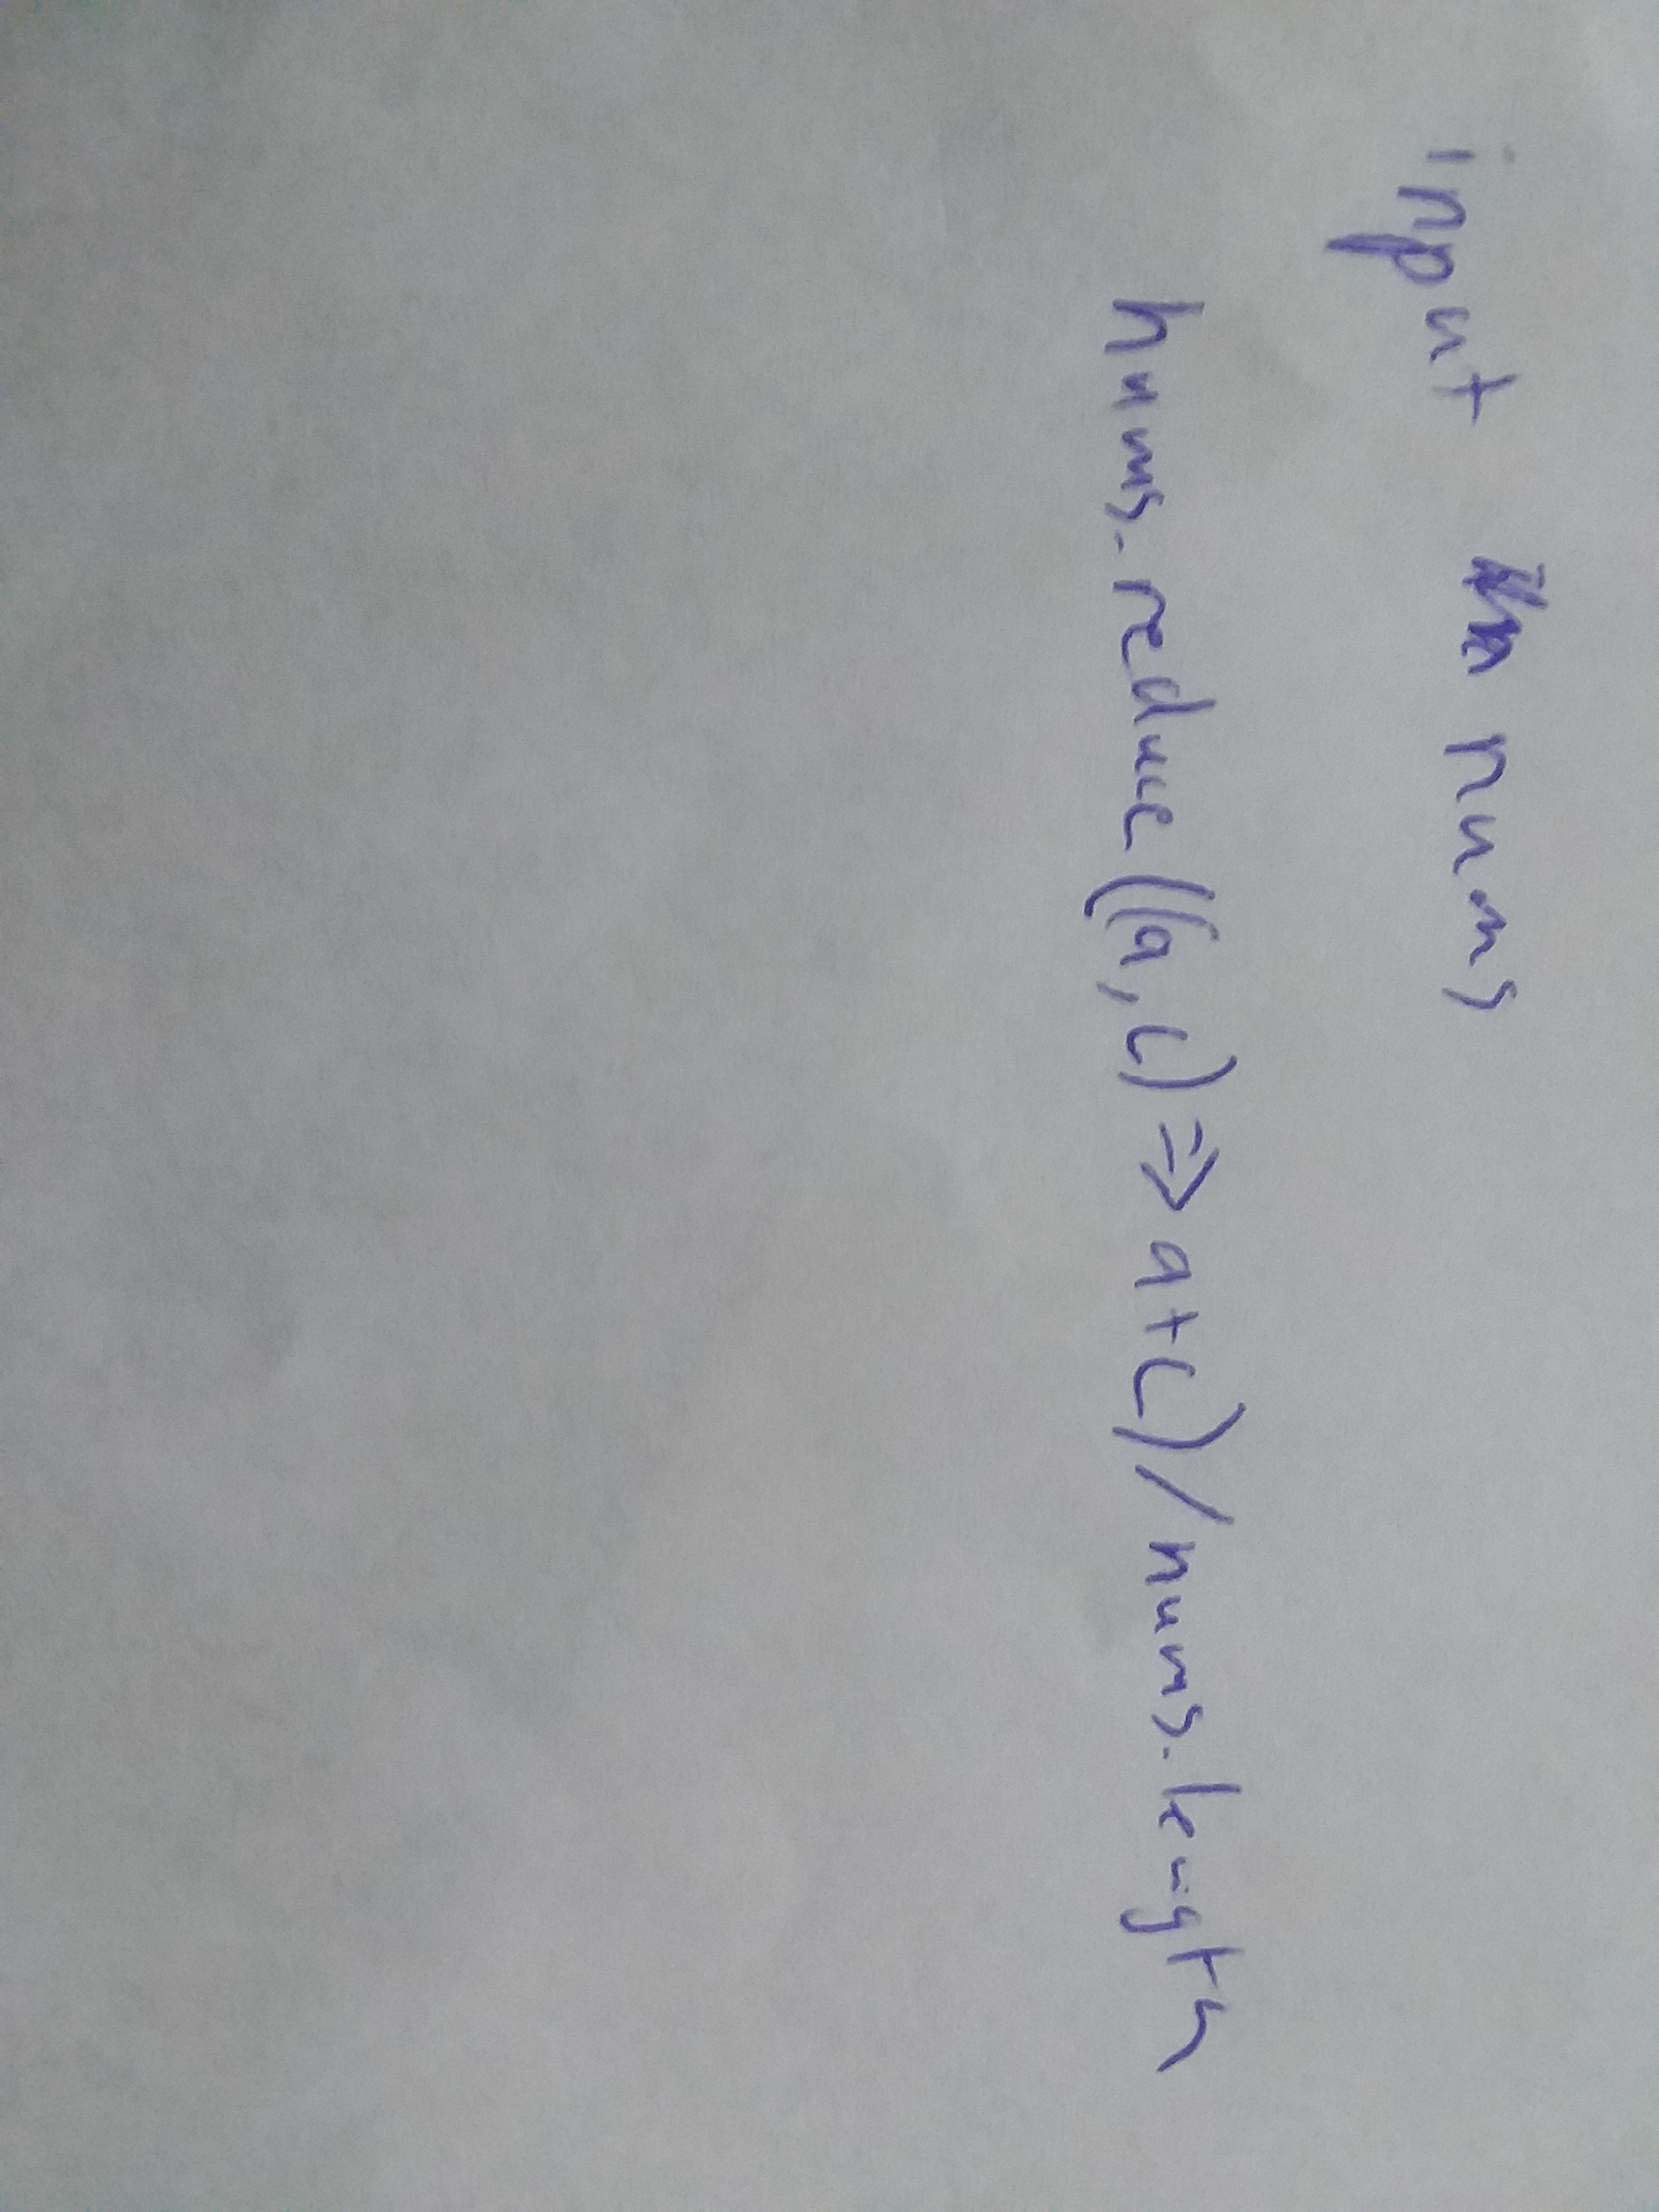 input nums
nums.reduce((a,c)=>a+c)/nums.length